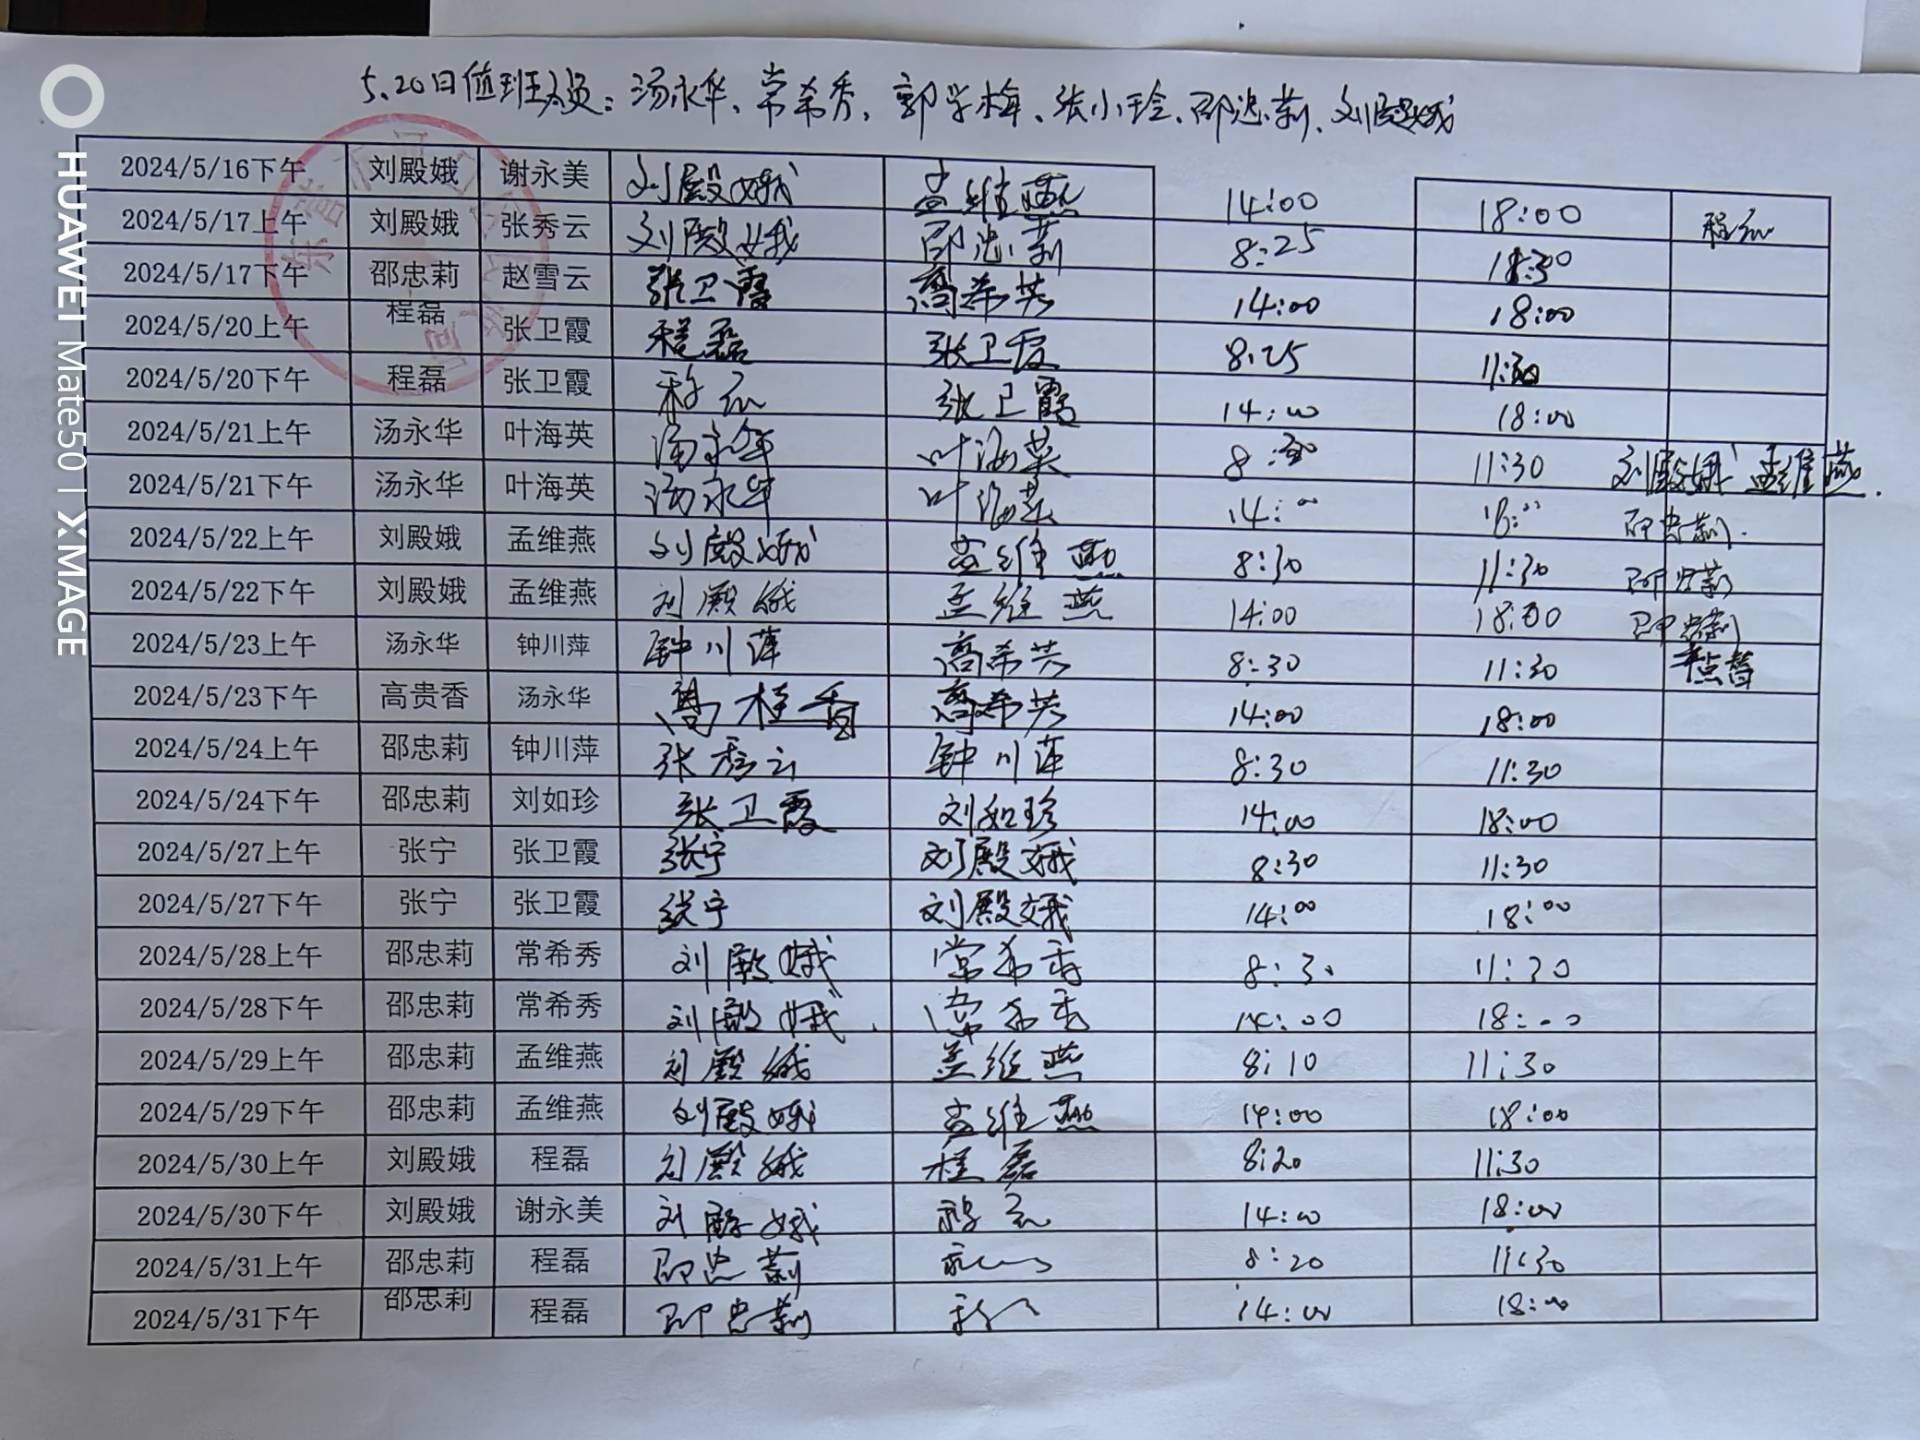 5.20日值班人员：汤永华、常希秀、郭学梅、张小玲、邵忠莉、刘殿娥
2024/5/16下午 刘殿娥 谢永美 刘殿娥 孟维燕 14:00 18:00 程磊
2024/5/17上午 刘殿娥 张秀云 刘殿娥 邵忠莉 8:25 11:30
2024/5/17下午 邵忠莉 赵雪云 张卫霞 高希芸 14:00 18:00
2024/5/20上午 程磊 张卫霞 程磊 张卫霞 8:25 11:30
2024/5/20下午 程磊 张卫霞 程磊 张卫霞 14:00 18:00
2024/5/21上午 汤永华 叶海英 汤永华 叶海英 8:30 11:30 刘殿娥 孟维燕.
2024/5/21下午 汤永华 叶海英 汤永华 叶海英 14:00 18:00 邵忠莉.
2024/5/22上午 刘殿娥 孟维燕 刘殿娥 孟维燕 8:30 11:30 邵忠莉
2024/5/22下午 刘殿娥 孟维燕 刘殿娥 孟维燕 14:00 18:00 邵忠莉
2024/5/23上午 汤永华 钟川萍 钟川萍 高希芸 8:30 11:30
2024/5/23下午 高贵香 汤永华 高桂香 高希芸 14:00 18:00
2024/5/24上午 邵忠莉 钟川萍 张秀云 钟川萍 8:30 11:30
2024/5/24下午 邵忠莉 刘如珍 张卫霞 刘如珍 14:00 18:00
2024/5/27上午 张宁 张卫霞 张宁 刘殿娥 8:30 11:30
2024/5/27下午 张宁 张卫霞 张宁 刘殿娥 14:00 18:00
2024/5/28上午 邵忠莉 常希秀 刘殿娥 常希秀 8:30 11:30
2024/5/28下午 邵忠莉 常希秀 刘殿娥 常希秀 14:00 18:00
2024/5/29上午 邵忠莉 孟维燕 刘殿娥 孟维燕 8:10 11:30
2024/5/29下午 邵忠莉 孟维燕 刘殿娥 孟维燕 14:00 18:00
2024/5/30上午 刘殿娥 程磊 刘殿娥 程磊 8:20 11:30
2024/5/30下午 刘殿娥 谢永美 刘殿娥 程磊 14:00 18:00
2024/5/31上午 邵忠莉 程磊 邵忠莉 8:20 11:30
2024/5/31下午 邵忠莉 程磊 邵忠莉 14:00 18:00
HUAWEI Mate50 | XMAGE